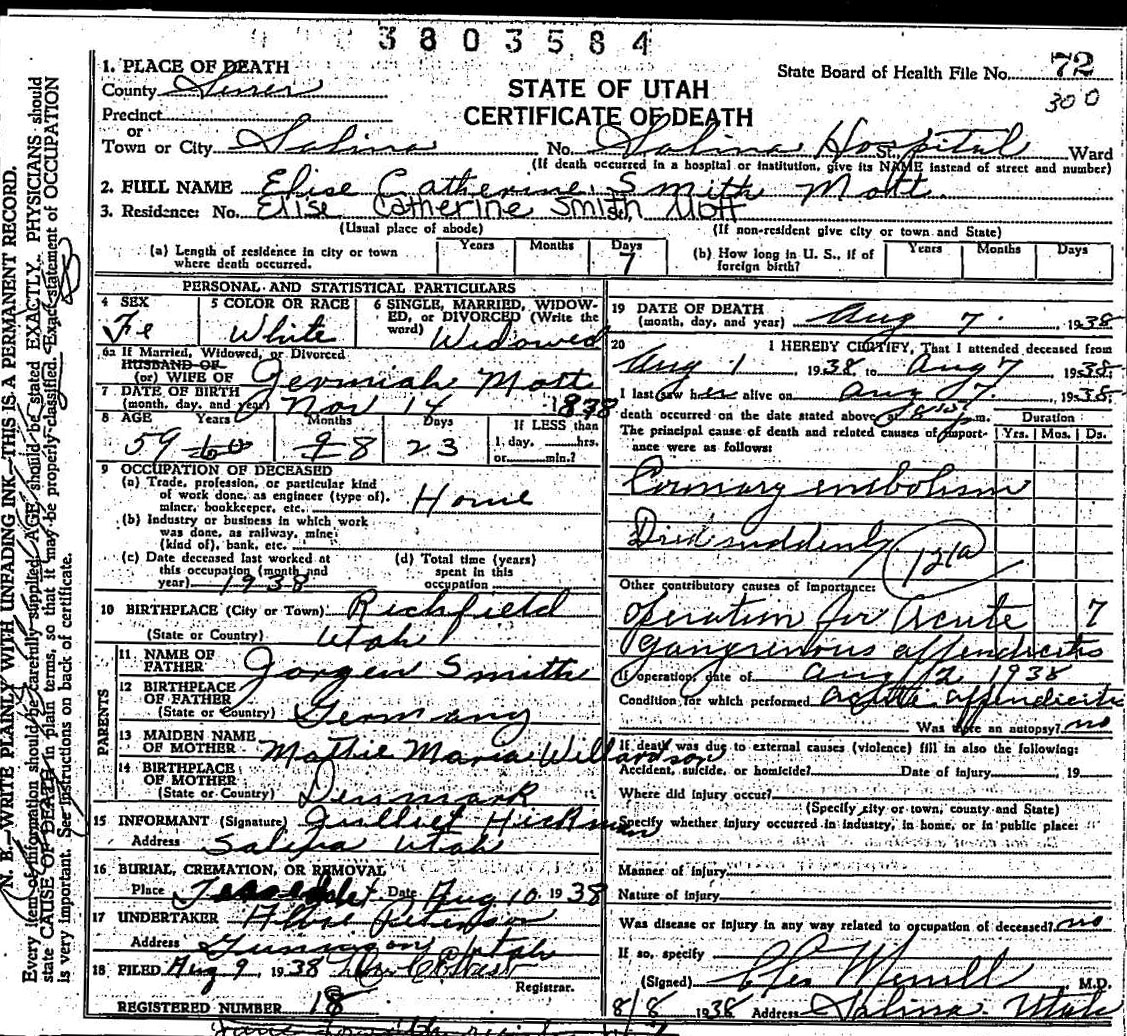 3803584
1. PLACE OF DEATH
State Board of Health File No. 72
300
County Sevier
STATE OF UTAH
CERTIFICATE OF DEATH
Precinct
or
Town or City Salina No. Salina Hospital St. Ward
(If death occurred in a hospital or institution, give its NAME instead of street and number)
2. FULL NAME Elise Catherine Smith Mott
3. Residence: No. Elise Catherine Smith Mott
(Usual place of abode) (If non-resident give city or town and State)
(a) Length of residence in city or town where death occurred. Years Months Days 7
(b) How long in U. S., if of foreign birth? Years Months Days
PERSONAL AND STATISTICAL PARTICULARS
4 SEX Fe
5 COLOR OR RACE White
6 SINGLE, MARRIED, WIDOWED, or DIVORCED (Write the word) Widowed
6a If Married, Widowed, or Divorced
HUSBAND OF
(or) WIFE OF Jermiah Mott
7 DATE OF BIRTH
(month, day, and year) Nov 14 1878
8 AGE Years Months Days If LESS than
59 60 9 8 23 1, day, hrs.
or min.?
9 OCCUPATION OF DECEASED
(a) Trade, profession, or particular kind
of work done, as engineer (type of),
miner, bookkeeper, etc. Home
(b) Industry or business in which work
was done, as railway, mine
(kind of), bank, etc.
(c) Date deceased last worked at
this occupation (month and
year) 1938
(d) Total time (years)
spent in this
occupation
10 BIRTHPLACE (City or Town) Richfield
(State or Country) Utah
PARENTS
11 NAME OF
FATHER Jorgen Smith
12 BIRTHPLACE
OF FATHER
(State or Country) Germany
13 MAIDEN NAME
OF MOTHER Mattie Maria Willardson
14 BIRTHPLACE
OF MOTHER
(State or Country) Denmark
15 INFORMANT (Signature) Hickman
Address Salina Utah
16 BURIAL, CREMATION, OR REMOVAL
Place Date Aug 10 1938
17 UNDERTAKER Peterson
Address Gunnison, Utah
18 FILED Aug 9, 1938
Registrar.
REGISTERED NUMBER 18
19 DATE OF DEATH
(month, day, and year) Aug 7. 1938
20 I HEREBY CERTIFY, That I attended deceased from
Aug 1 1938 to Aug 7 1938
I last saw her alive on Aug 7. 1938
death occurred on the date stated above, at m.
Duration
The principal cause of death and related causes of importance were as follows: Yrs. Mos. Ds.
Coronary embolism
Died suddenly 121a
Other contributory causes of importance:
operation for Acute 7
Gangrenous appendicitis
If operation, date of Aug 2 1938
Condition for which performed acute appendicitis
Was there an autopsy? no
If death was due to external causes (violence) fill in also the following:
Accident, suicide, or homicide? Date of injury , 19
Where did injury occur?
(Specify city or town, county and State)
Specify whether injury occurred in industry, in home, or in public place:
Manner of injury
Nature of injury
Was disease or injury in any way related to occupation of deceased? no
If so, specify
(Signed) Merrill M.D.
8/8 1938 Address Salina. Utah
N. B.—WRITE PLAINLY WITH UNFADING INK—THIS IS A PERMANENT RECORD.
Every item of information should be carefully supplied. AGE should be stated EXACTLY. PHYSICIANS should
state CAUSE OF DEATH in plain terms, so that it may be properly classified. Exact statement of OCCUPATION
is very important. See instructions on back of certificate.